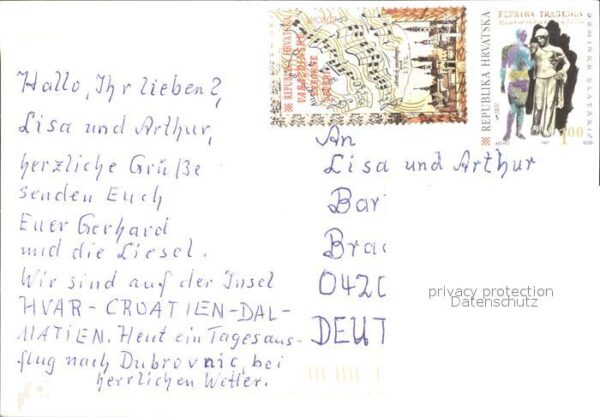 Hallo, Ihr lieben 2,
Lisa und Arthur,
herzliche Grüße
senden Euch
Euer Gerhard
und die Liesel.
Wir sind auf der Insel
HVAR-CROATIEN-DAL-
MATIEN. Heut ein Tagesaus-
flug nach Dubrovnic, bei
herrlichen Wetter.
REPUBLIKA HRVATSKA
VARAŽDINSKE
BAROKNE
VEČERI
REPUBLIKA HRVATSKA
ELEKTRA TRAGEDIJA
DOMINKO ZLATARIĆ
1.00
1997
An
Lisa und Arthur
Bar
Brac
042
DEUT
privacy protection
Datenschutz